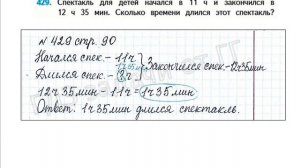 429. Спектакль для детей начался в 11 ч и закончился в
12 ч 35 мин. Сколько времени длился этот спектакль?
№ 429 стр. 90
Начался спек. - 11ч
Длился спек. - ?ч
Закончился спек. - 12ч35мин
12ч 35мин - 11ч = 1ч 35мин
Ответ: 1ч 35мин длился спектакль.